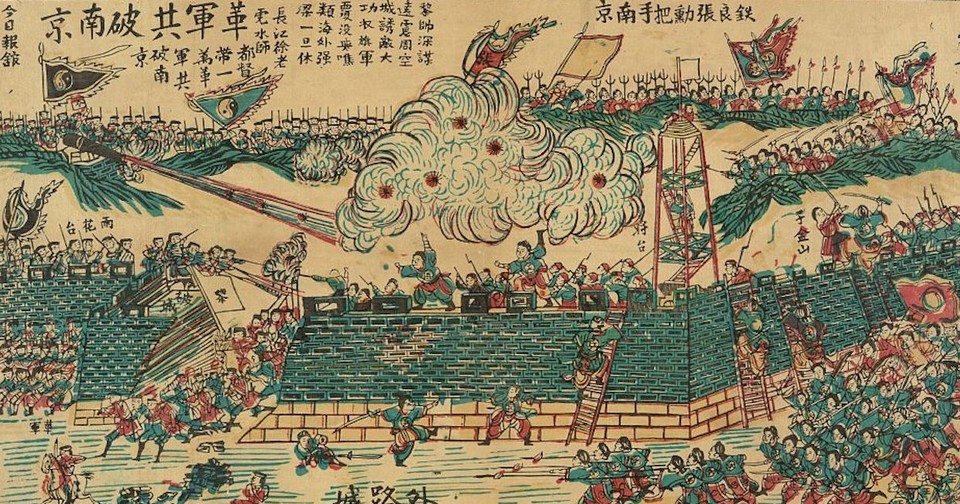 鉄良張勳把手南京
黎帥深謀
遠慮周空
城誘敵大
功收旗軍
覆沒無噍
類海外强
梁一旦休
長江徐老
虎水師
都督
帶一
萬革
軍共
破南
京
革軍共破南京
今日報館
雨花台
将台
黎
外路城